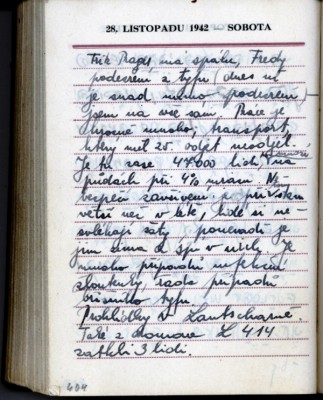 28. LISTOPADU 1942 SOBOTA
má spálu, Fredy
podezření z tyfu (dnes mi
je snad mimo podezření)
jsem na vše sám. Práce je
hrozně mnoho, transport,
který měl 25. odjet neodjel.
Je tu zase 47.000 lidí,
půdách při 4% mrazu. Ne-
bezpečí zavšivení je
větší než v létě, lidé si ne-
svlékají šaty poněvadž je
jim zima a spí v nich. Je
mnoho případů infekční
žloutenky, řada případů
břišního tyfu.
Prohlídky v
Také z domova L 414
zatkli 3 lidi.
404